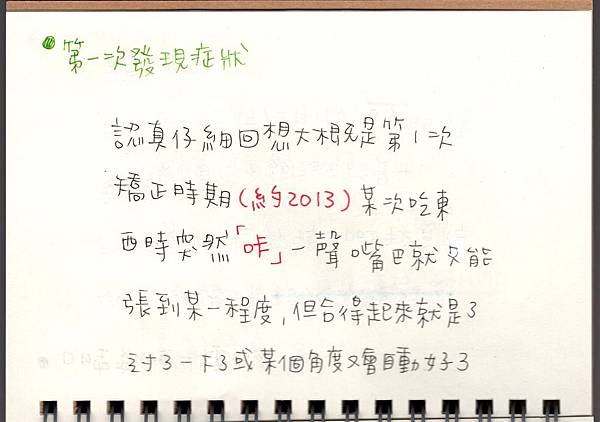 第一次發現症狀
認真仔細回想大概是第1次
矯正時期(約2013)某次吃東
西時突然「咔」一聲嘴巴就只能
張到某一程度,但合得起來就是3
過3一下3或某個角度又會自動好3